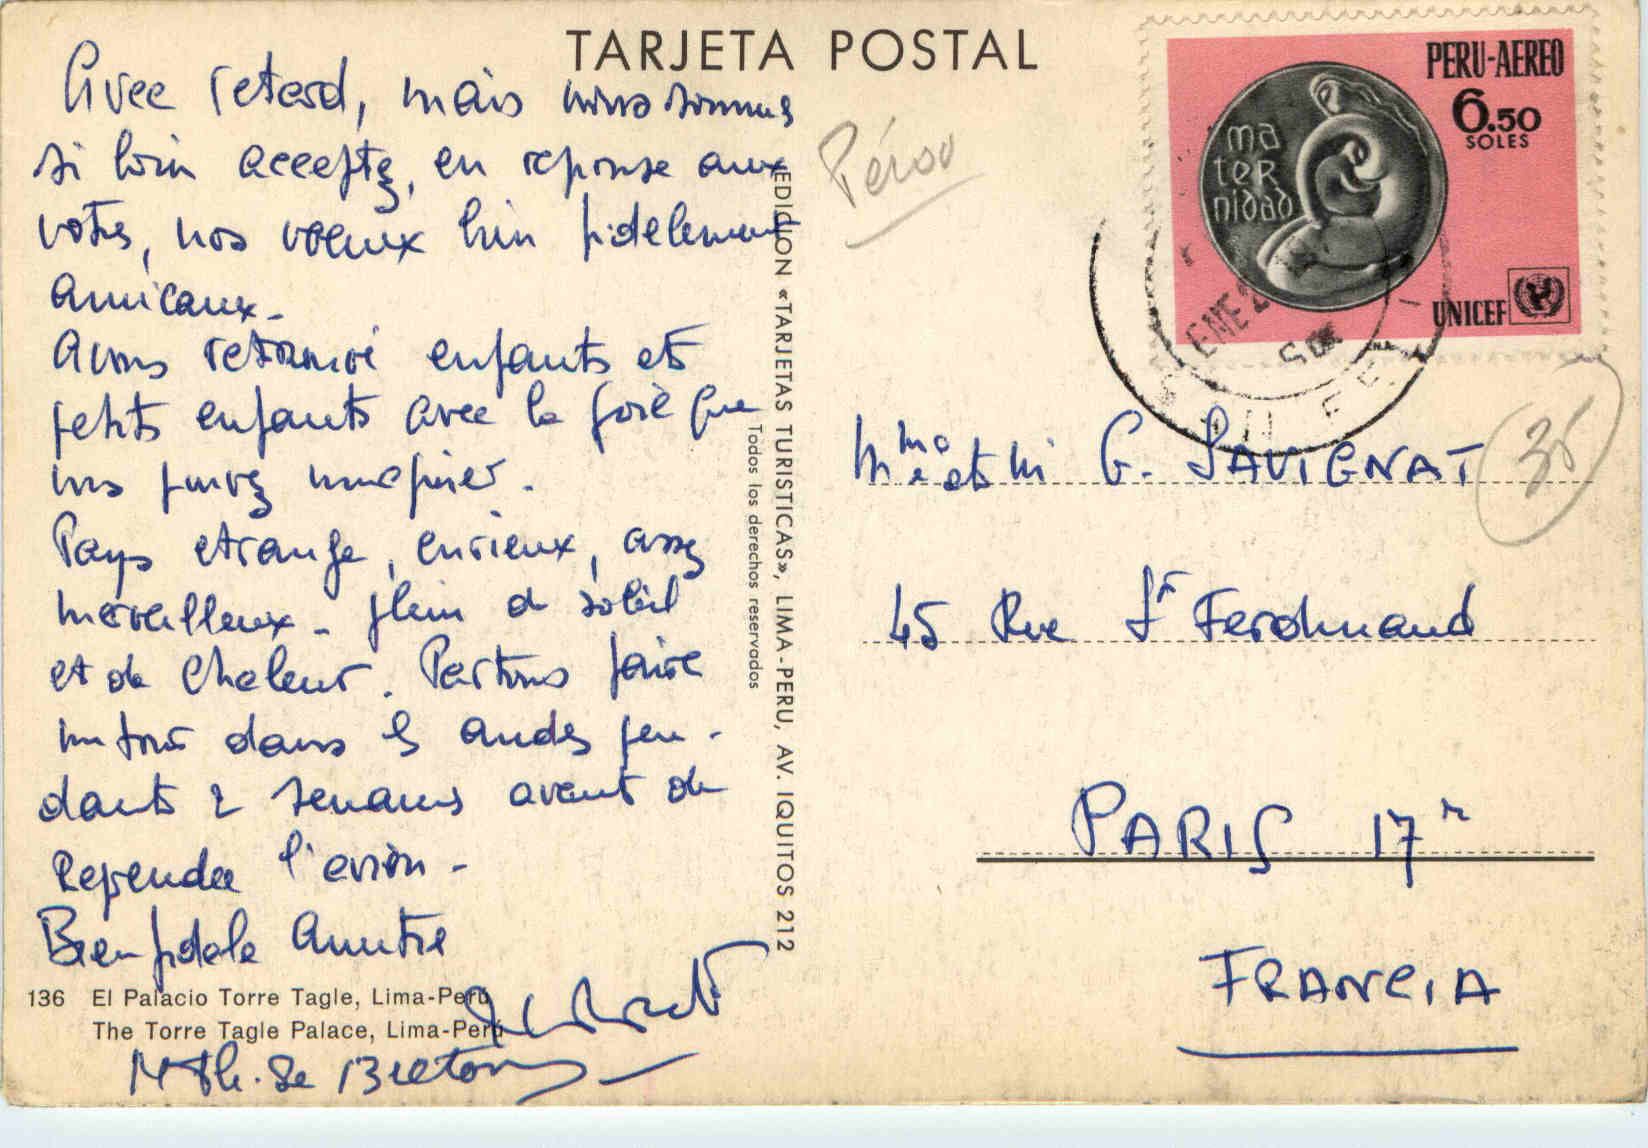 TARJETA POSTAL
Avec retard, mais nous sommes
si loin acceptez, en reponse aux
votres, nos voeux bien fidelement
amicaux -
Avons retrouvé enfants et
petits enfants avec la joie que
vous pouvez imaginer.
Pays etrange, curieux, assez
merveilleux - plein de soleil
et de chaleur. Partons faire
un tour dans les andes pen-
dant 2 semaines avant de
reprendre l'avion -
Bien fidele Amitié
M Th. de Bretony
136 El Palacio Torre Tagle, Lima-Perú
The Torre Tagle Palace, Lima-Perú
EDICION «TARJETAS TURISTICAS», LIMA-PERU, AV. IQUITOS 212
Todos los derechos reservados
Pérou
PERU-AEREO
6.50
SOLES
ma
ter
nidad
UNICEF
ENE
G. SAVIGNAT
35
45 Rue St Ferdinand
PARIS 17e
FRANCIA